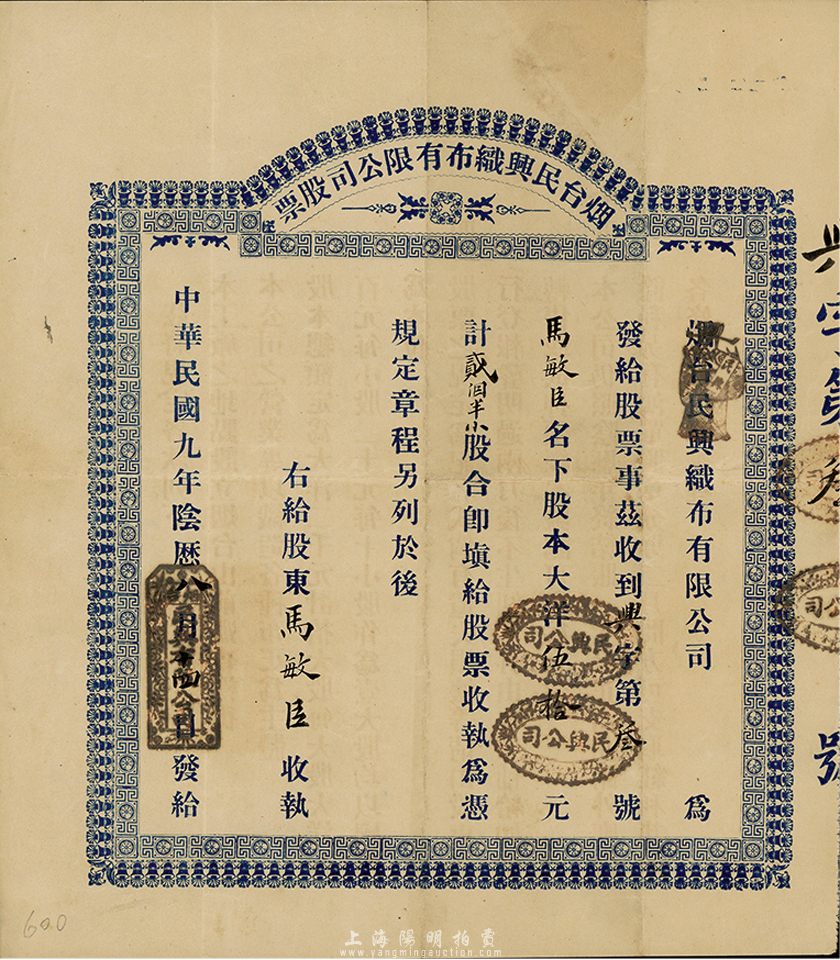 烟台民興織布有限公司股票
烟台民興織布有限公司 為
發給股票事茲收到興字第叁號
馬敏臣名下股本大洋伍拾元
計貳個半小股合卽塡給股票收執為憑
規定章程另列於後
右給股東馬敏臣收執
中華民國九年陰歷八月十四日發給
民興公司
民興公司
興字第叁
號
600
上海陽明拍賣
www.yangmingauction.com